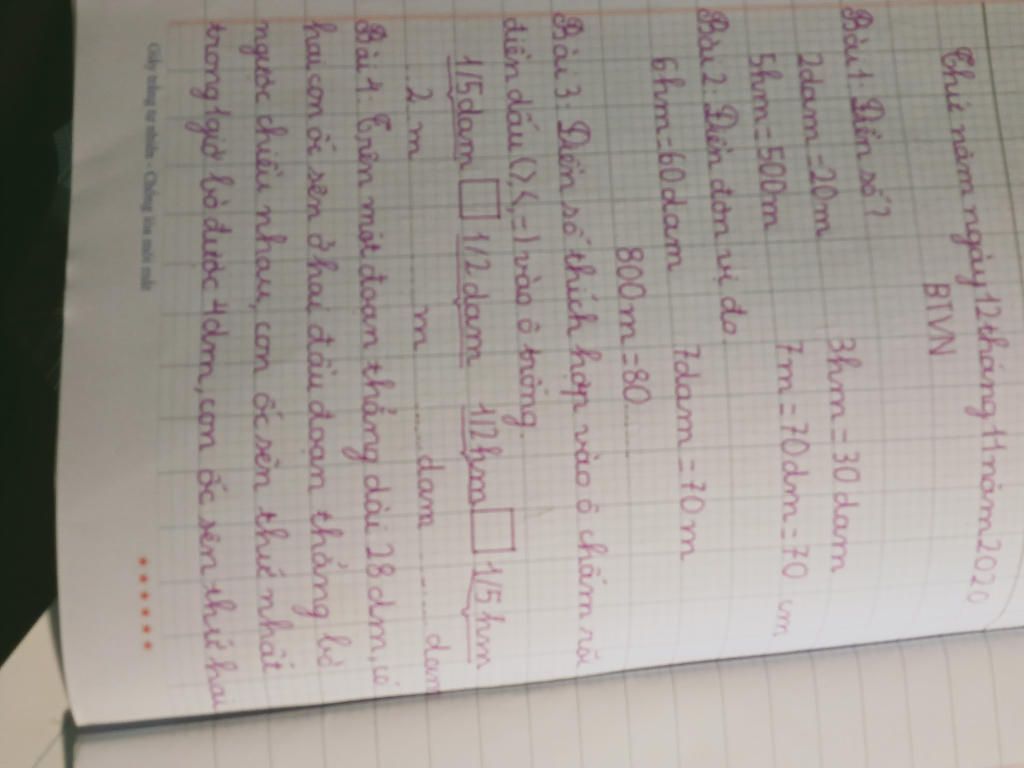 Thứ năm ngày 12 tháng 11 năm 2020
BTVN
Bài 1: Điền số?
2dam = 20m 3hm = 30 dam
5hm = 500m 7m = 70dm = 70 cm
Bài 2: Điền đơn vị đo.
6hm = 60dam 7dam = 70m
800m = 80.......
Bài 3: Điền số thích hợp vào ô chấm rồi
điền dấu (>, <, =) vào ô trống.
1/5dam □ 1/2dam 1/2hm □ 1/5hm
...2...m ........m ......dam ......dam
Bài 4: Trên một đoạn thẳng dài 28dm, có
hai con ốc sên ở hai đầu đoạn thẳng bò
ngược chiều nhau, con ốc sên thứ nhất
trong 1giờ bò được 4dm, con ốc sên thứ hai
Giấy trắng tự nhiên - Chống lóa mỏi mắt